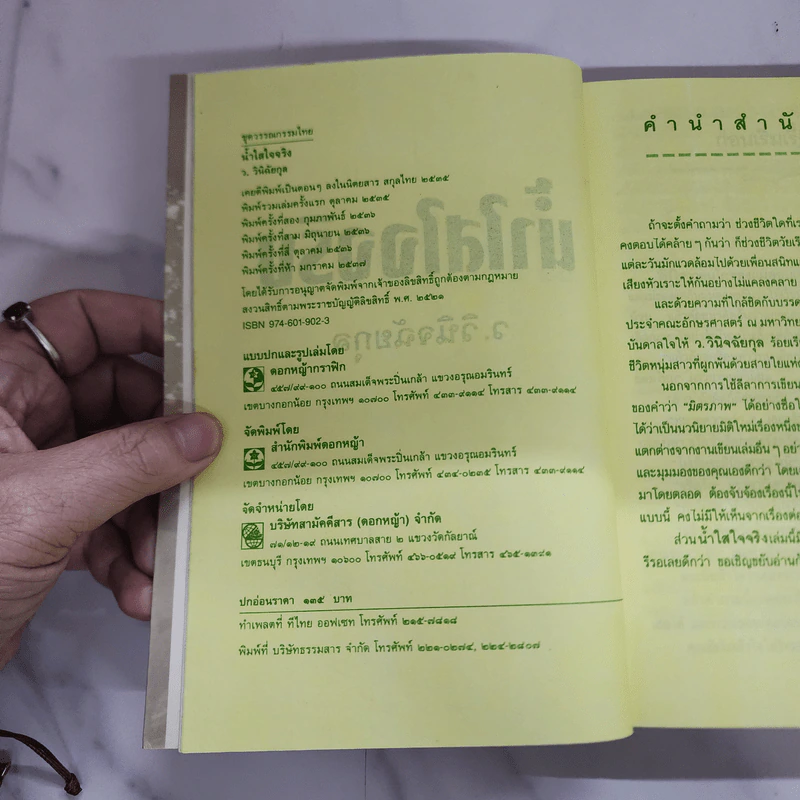 ชุดวรรณกรรมไทย
น้ำใสใจจริง
ว. วินิจฉัยกุล
เคยตีพิมพ์เป็นตอนๆ ลงในนิตยสาร สกุลไทย ๒๕๓๕
พิมพ์รวมเล่มครั้งแรก ตุลาคม ๒๕๓๕
พิมพ์ครั้งที่สอง กุมภาพันธ์ ๒๕๓๖
พิมพ์ครั้งที่สาม มิถุนายน ๒๕๓๖
พิมพ์ครั้งที่สี่ ตุลาคม ๒๕๓๖
พิมพ์ครั้งที่ห้า มกราคม ๒๕๓๗
โดยได้รับการอนุญาตจัดพิมพ์จากเจ้าของลิขสิทธิ์ถูกต้องตามกฎหมาย
สงวนสิทธิ์ตามพระราชบัญญัติลิขสิทธิ์ พ.ศ. ๒๕๒๑
ISBN 974-601-902-3
แบบปกและรูปเล่มโดย
ดอกหญ้ากราฟิก
๔๕๗/๙๙-๑๐๐ ถนนสมเด็จพระปิ่นเกล้า แขวงอรุณอมรินทร์
เขตบางกอกน้อย กรุงเทพฯ ๑๐๗๐๐ โทรศัพท์ ๔๓๓-๙๑๑๔ โทรสาร ๔๓๓-๙๑๑๔
จัดพิมพ์โดย
สำนักพิมพ์ดอกหญ้า
๔๕๗/๙๙-๑๐๐ ถนนสมเด็จพระปิ่นเกล้า แขวงอรุณอมรินทร์
เขตบางกอกน้อย กรุงเทพฯ ๑๐๗๐๐ โทรศัพท์ ๔๓๔-๐๒๓๕ โทรสาร ๔๓๓-๙๑๑๔
จัดจำหน่ายโดย
บริษัทสามัคคีสาร (ดอกหญ้า) จำกัด
๗๑/๑๒-๑๙ ถนนเทศบาลสาย ๒ แขวงวัดกัลยาณ์
เขตธนบุรี กรุงเทพฯ ๑๐๖๐๐ โทรศัพท์ ๔๖๖-๐๕๑๙ โทรสาร ๔๖๕-๑๓๙๑
ปกอ่อนราคา ๑๓๕ บาท
ทำเพลตที่ ทีไทย ออฟเซท โทรศัพท์ ๒๑๕-๗๘๑๘
พิมพ์ที่ บริษัทธรรมสาร จำกัด โทรศัพท์ ๒๒๑-๐๒๗๔, ๒๒๔-๒๘๐๗
คำนำสำนั
ถ้าจะตั้งคำถามว่า ช่วงชีวิตใดที่เร
คงตอบได้คล้ายๆกันว่า ก็ช่วงชีวิตวัยเรี
แต่ละวันมักแวดล้อมไปด้วยเพื่อนสนิทแ
เสียงหัวเราะให้กันอย่างไม่แคลงคลาย
และด้วยความที่ใกล้ชิดกับบรรด
ประจำคณะอักษรศาสตร์ ณ มหาวิทย
บันดาลใจให้ ว.วินิจฉัยกุล ร้อยเรี
ชีวิตหนุ่มสาวที่ผูกพันด้วยสายใยแห่ง
นอกจากการใช้ลีลาการเขียน
ของคำว่า "มิตรภาพ" ได้อย่างชื่อใ
ได้ว่าเป็นนวนิยายมิติใหม่เรื่องหนึ่งข
แตกต่างจากงานเขียนเล่มอื่นๆ อย่า
และมุมมองของคุณเองดีกว่า โดยเ
มาโดยตลอด ต้องจับจ้องเรื่องนี้ใ
แบบนี้ คงไม่มีให้เห็นจากเรื่องต่อ
ส่วนน้ำใสใจจริงเล่มนี้มี
รีรอเลยดีกว่า ขอเชิญขยับอ่านกั